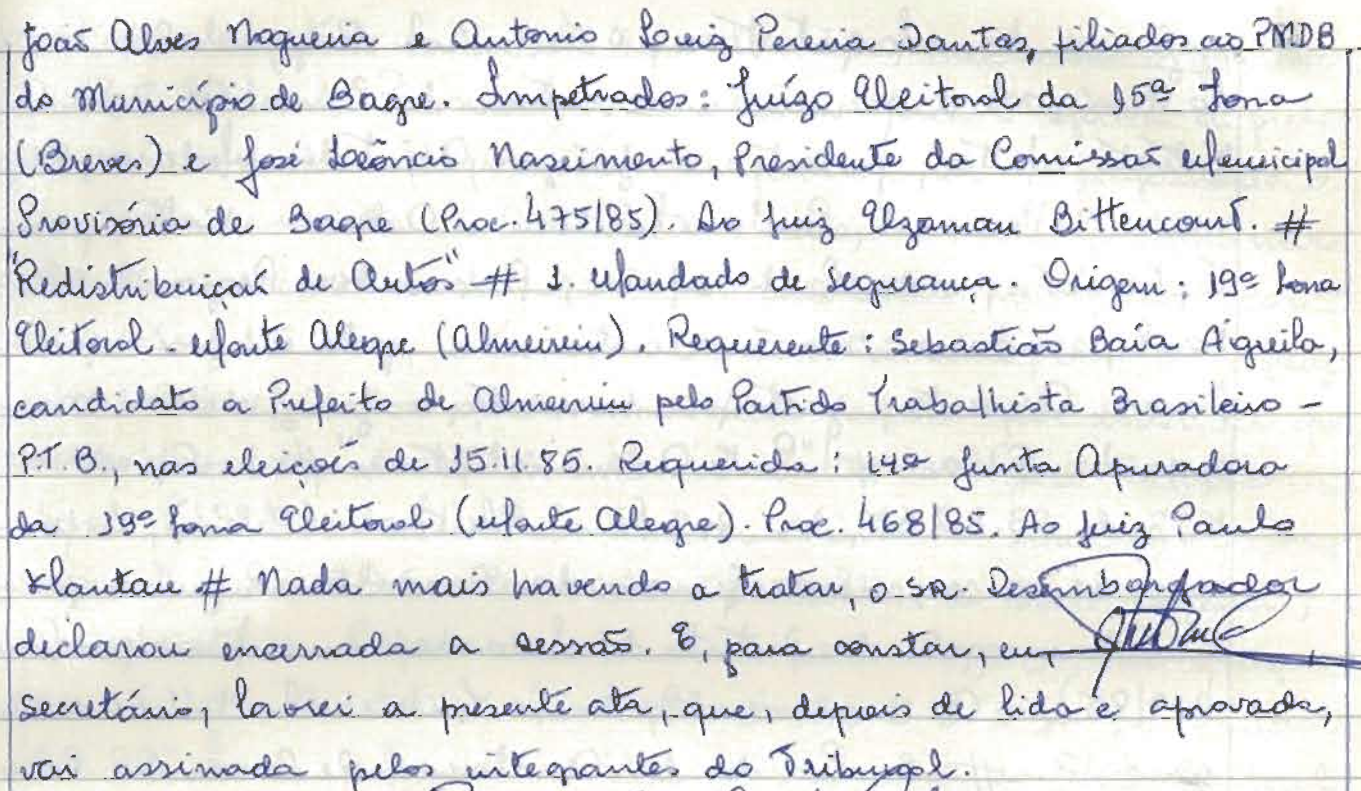 João Alves Nogueira e Antonio Luiz Pereira Dantas, filiados ao PMDB
do Município de Bagre. Impetrados: Juízo Eleitoral da 15ª Zona
(Breves) e José Leôncio Nascimento, Presidente da Comissão Municipal
Provisória de Bagre (Proc. 475/85). Ao Juiz Elzaman Bittencourt. #
"Redistribuição de Autos" # 1. Mandado de Segurança. Origem: 19ª Zona
Eleitoral - Monte Alegre (Almeirim). Requerente: Sebastião Baía Águila,
candidato a Prefeito de Almeirim pelo Partido Trabalhista Brasileiro -
P.T.B., nas eleições de 15.11.85. Requerida: 14ª Junta Apuradora
da 19ª Zona Eleitoral (Monte Alegre). Proc. 468/85. Ao Juiz Paulo
Klautau # Nada mais havendo a tratar, o SR. Desembargador
declarou encerrada a sessão. E, para constar, eu,
Secretário, lavrei a presente ata, que, depois de lida e aprovada,
vai assinada pelos integrantes do Tribunal.